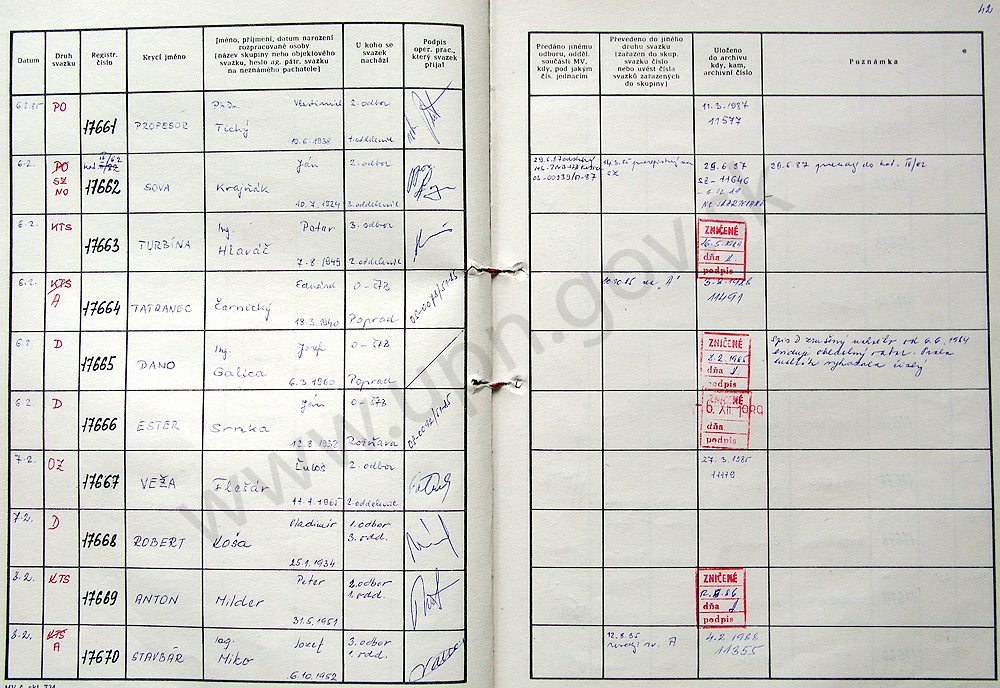 42
Datum
Druh svazku
Registr. číslo
Krycí jméno
Jméno, příjmení, datum narození
rozpracované osoby
(název skupiny nebo objektového
svazku, heslo ag. pátr. svazku
na neznámého pachatele)
U koho se
svazek
nachází
Podpis
oper. prac.,
který svazek
přijal
Předáno jinému
odboru, odděl.
součásti MV,
kdy, pod jakým
čís. jednacím
Převedeno do jiného
druhu svazku
(zařazen do skup.
svazku číslo
nebo uvést čísla
svazků zařazených
do skupiny)
Uloženo
do archivu
kdy, kam,
archivní číslo
Poznámka
6.2.85 PO 17661 PROFESOR PhDr. Vlastimil Tichý 10.6.1938 2. odbor 1. oddelenie
11.3.1987
11577
6.2. PO SZ NO 17662 SOVA Ján Krajňák 10.7.1924 2. odbor 3. oddelenie
29.6.87
SZ-11646
29.6.87
6.2. KTS 17663 TURBÍNA Ing. Peter Hlaváč 7.8.1949 3. odbor 2. oddelenie
ZNIČENÉ
dňa
podpis
6.2. KTS A 17664 TATRANEC Eduard Čarnický 18.3.1940 O-ŠTB Poprad
11491
6.2. D 17665 DANO Ing. Jozef Galica 6.3.1960 O-ŠTB Poprad
ZNIČENÉ
dňa
podpis
6.2. D 17666 ESTER Ján Srnka 12.8.1932 O-ŠTB Rožňava
ZNIČENÉ
6. XII. 1989
dňa
podpis
7.2. OZ 17667 VEŽA Ľuboš Flešár 11.1.1965 2. odbor 2. oddelenie
27.3.1985
11119
7.2. D 17668 ROBERT Vladimír Koša 25.1.1934 1. odbor 3. odd.
8.2. KTS 17669 ANTON Peter Milder 31.5.1951 2. odbor 1. odd.
ZNIČENÉ
dňa
podpis
8.2. KTS A 17670 STAVBÁR Ing. Jozef Miko 6.10.1952 3. odbor 1. odd.
12.8.85
A
4.2.1988
11355
www.upn.gov.sk